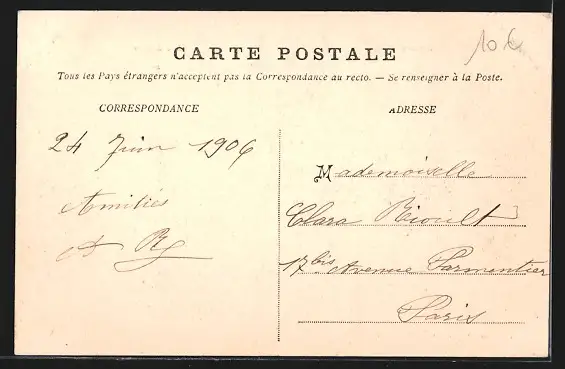 10 €
CARTE POSTALE
Tous les Pays étrangers n'acceptent pas la Correspondance au recto. — Se renseigner à la Poste.
CORRESPONDANCE
ADRESSE
24 Juin 1906
Amitiés
Mademoiselle
Clara Rioult
17bis Avenue Parmentier
Paris